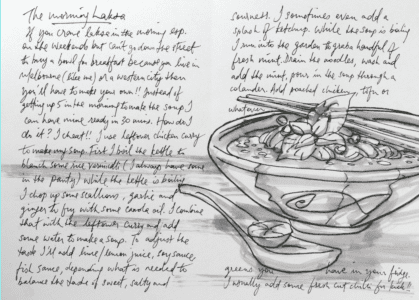 The morning Laksa
If you crave laksa in the morning esp.
on the weekends but can't go down the street
to buy a bowl for breakfast because you live in
Melbourne (like me) or a western city then
you'll have to make your own!! Instead of
getting up 5 in the morning to make the soup, I
can have mine ready in 30 mins. How do I
do it? I cheat!! I use leftover chicken curry
to make my soup. First I boil the kettle to
blanch some rice vermicelli (I always have some
in the pantry) While the kettle is boiling
I chop up some scallions, garlic and
ginger to fry with some canola oil. I combine
that with the leftover curry and add
some water to make a soup. To adjust the
taste I'll add lime/lemon juice, soy sauce,
fish sauce, depending what is needed to
balance the taste of sweet, salty and
sourness. I sometimes even add a
splash of ketchup. While the soup is boiling
I run into the garden to grab a handful of
fresh mint. Drain the noodles, wash and
add the mint, pour in the soup through a
colander. Add poached chicken, tofu or
whatever
greens you have in your fridge.
I usually add some fresh cut chilli for kick!!